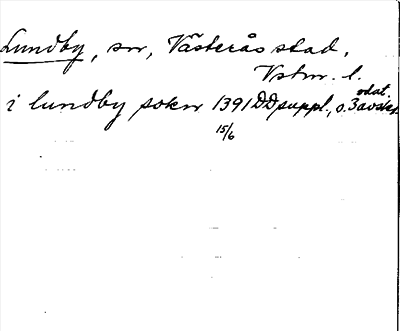 Lundby, sn, Västerås stad,
Vstm. l.
odat.
i lundby sokn 1391 DD suppl., s. 3 avskr.
15/6